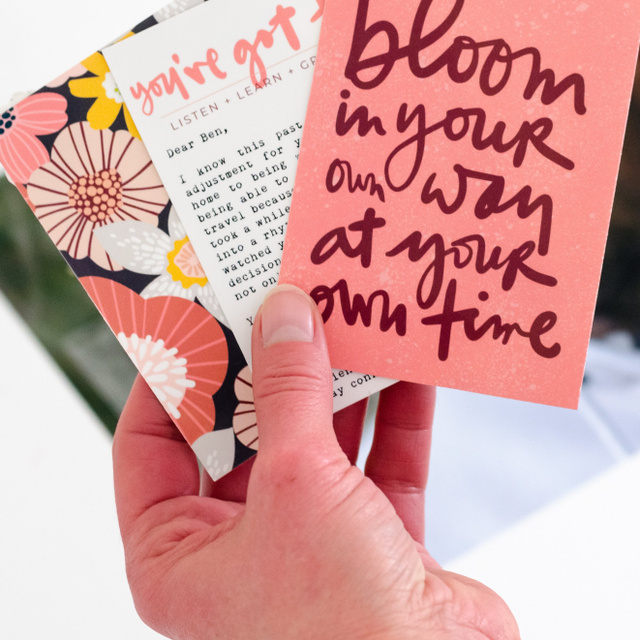 you've got
LISTEN + LEARN +
Dear Ben,
I know this past
adjustment for
home to being
being able to
travel because
took a while
into a
watched
decision
not
bloom
in your
own way
at your
own time